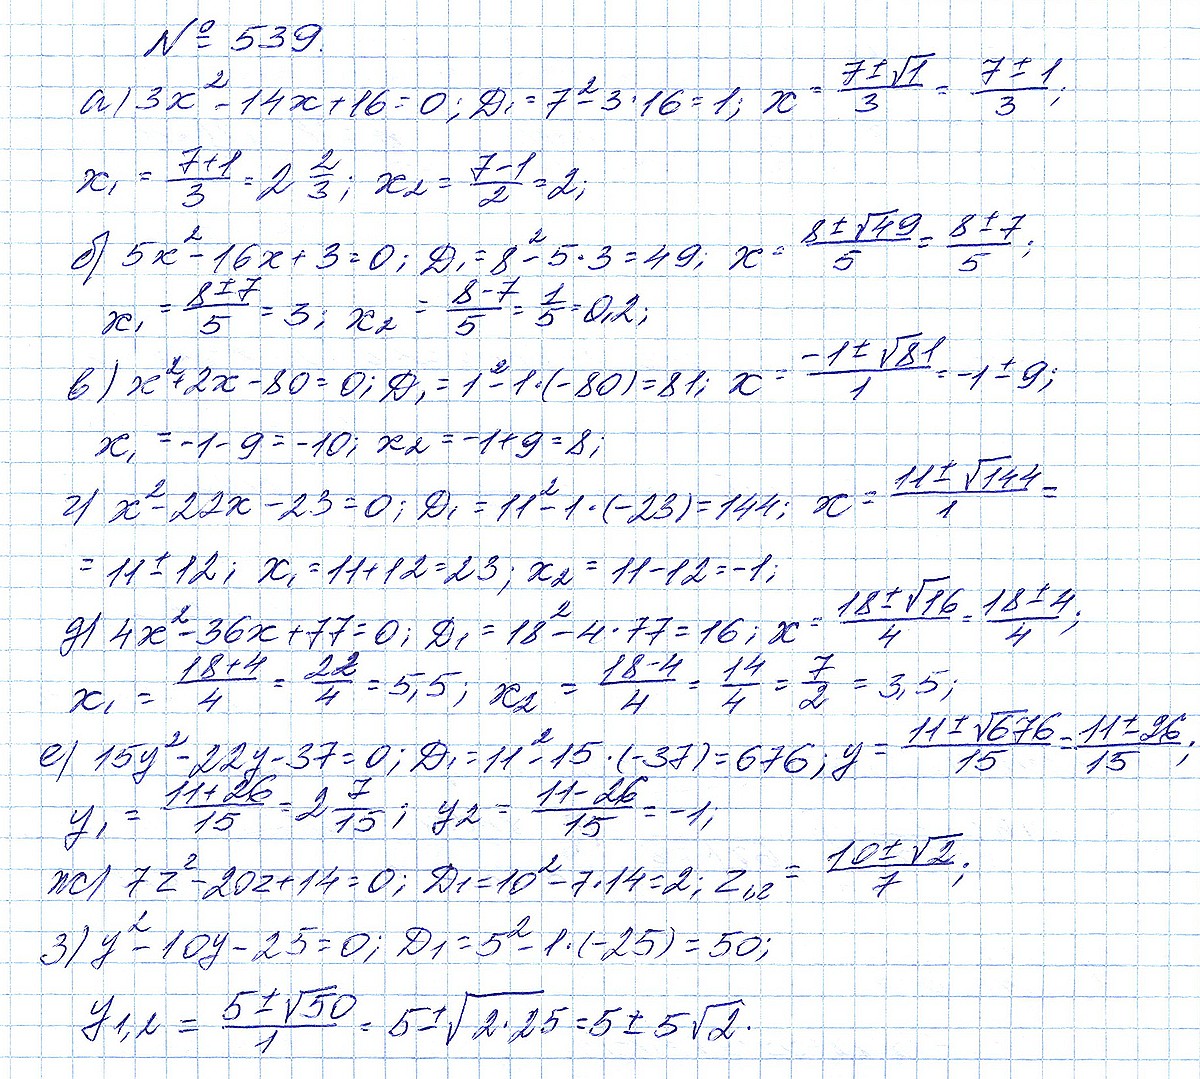 № 539.
а) 3x² - 14x + 16 = 0; Д₁ = 7² - 3·16 = 1; x = (7 ± √1)/3 = (7 ± 1)/3;
x₁ = (7+1)/3 = 2 2/3; x₂ = (7-1)/2 = 2;
б) 5x² - 16x + 3 = 0; Д₁ = 8² - 5·3 = 49; x = (8 ± √49)/5 = (8 ± 7)/5;
x₁ = (8 ± 7)/5 = 3; x₂ = (8-7)/5 = 1/5 = 0,2;
в) x² + 2x - 80 = 0; Д₁ = 1² - 1·(-80) = 81; x = (-1 ± √81)/1 = -1 ± 9;
x₁ = -1 - 9 = -10; x₂ = -1 + 9 = 8;
г) x² - 22x - 23 = 0; Д₁ = 11² - 1·(-23) = 144; x = (11 ± √144)/1 =
= 11 ± 12; x₁ = 11 + 12 = 23; x₂ = 11 - 12 = -1;
д) 4x² - 36x + 77 = 0; Д₁ = 18² - 4·77 = 16; x = (18 ± √16)/4 = (18 ± 4)/4;
x₁ = (18+4)/4 = 22/4 = 5,5; x₂ = (18-4)/4 = 14/4 = 7/2 = 3,5;
е) 15y² - 22y - 37 = 0; Д₁ = 11² - 15·(-37) = 676; y = (11 ± √676)/15 = (11 ± 26)/15;
y₁ = (11+26)/15 = 2 7/15; y₂ = (11-26)/15 = -1;
ж) 7z² - 20z + 14 = 0; Д₁ = 10² - 7·14 = 2; z₁,₂ = (10 ± √2)/7;
з) y² - 10y - 25 = 0; Д₁ = 5² - 1·(-25) = 50;
y₁,₂ = (5 ± √50)/1 = 5 ± √(2·25) = 5 ± 5√2.